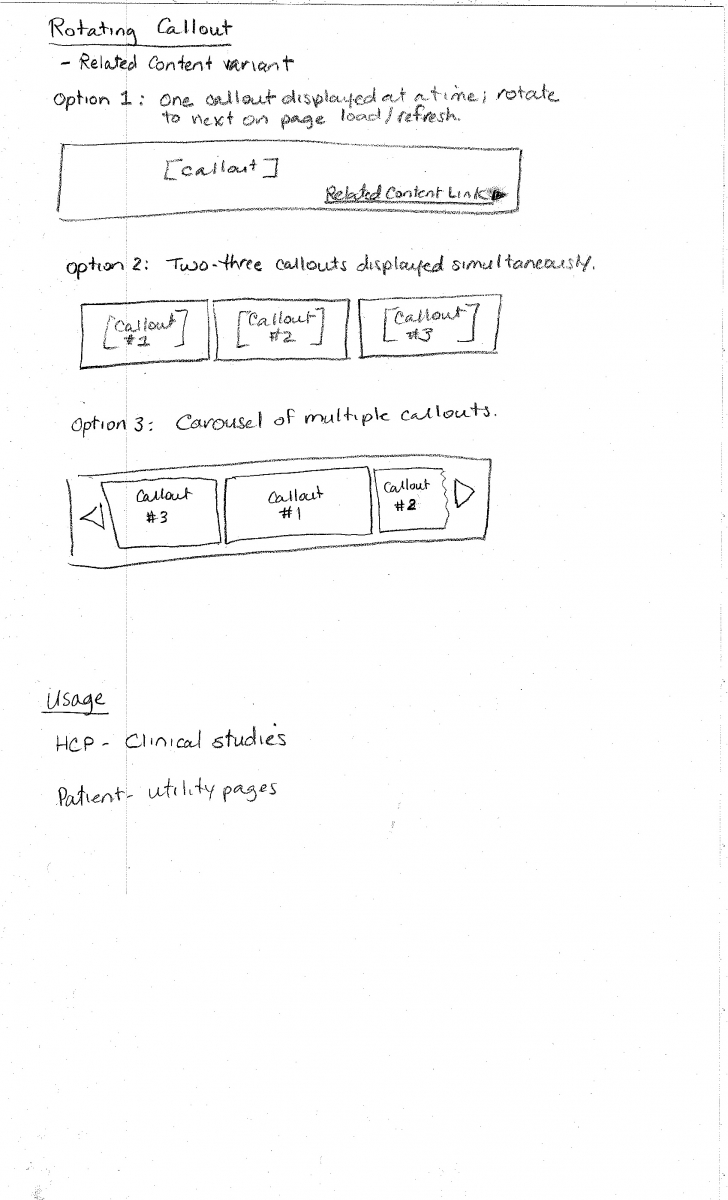 Rotating Callout
- Related Content variant
Option 1: One callout displayed at a time; rotate
to next on page load/refresh.
[callout]
Related Content Link
Option 2: Two-three callouts displayed simultaneously.
[Callout #1] [Callout #2] [Callout #3]
Option 3: Carousel of multiple callouts.
Callout #3 Callout #1 Callout #2
Usage
HCP - Clinical studies
Patient - utility pages